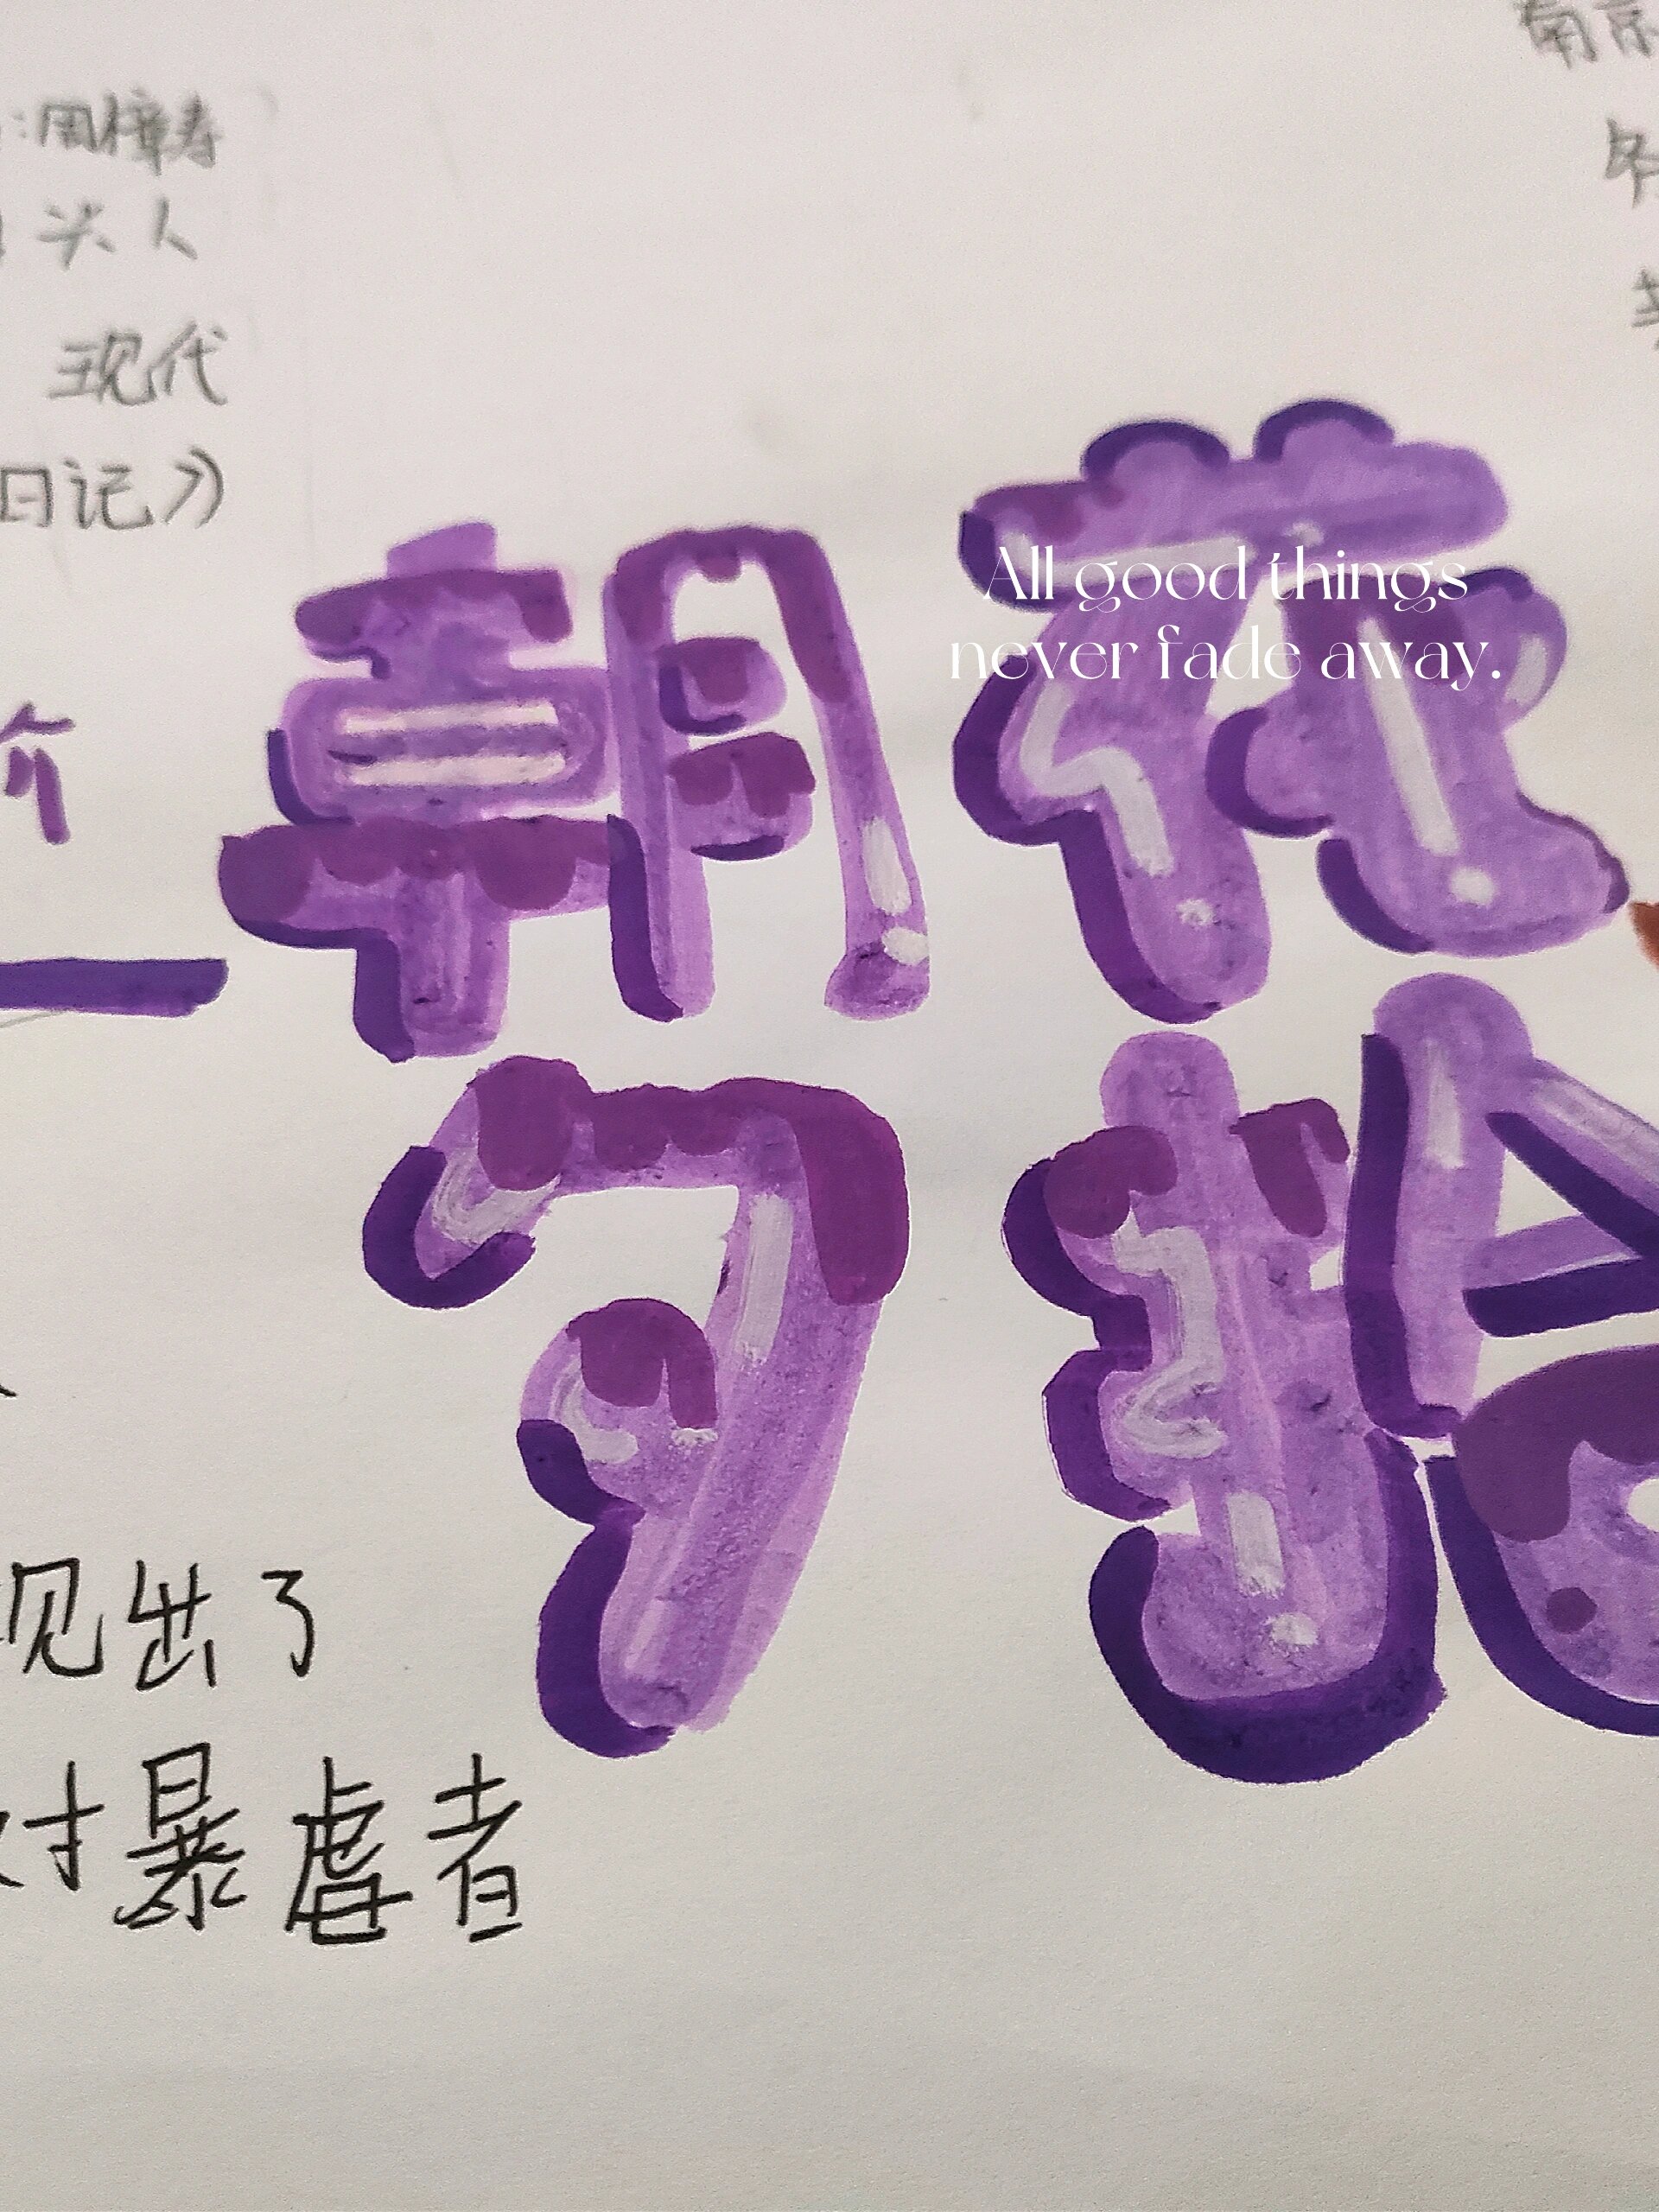 南京
:周樟寿
头人
现代
日记》)
朝花
All good things
never fade away.
介
夕拾
现出了
对暴虐者